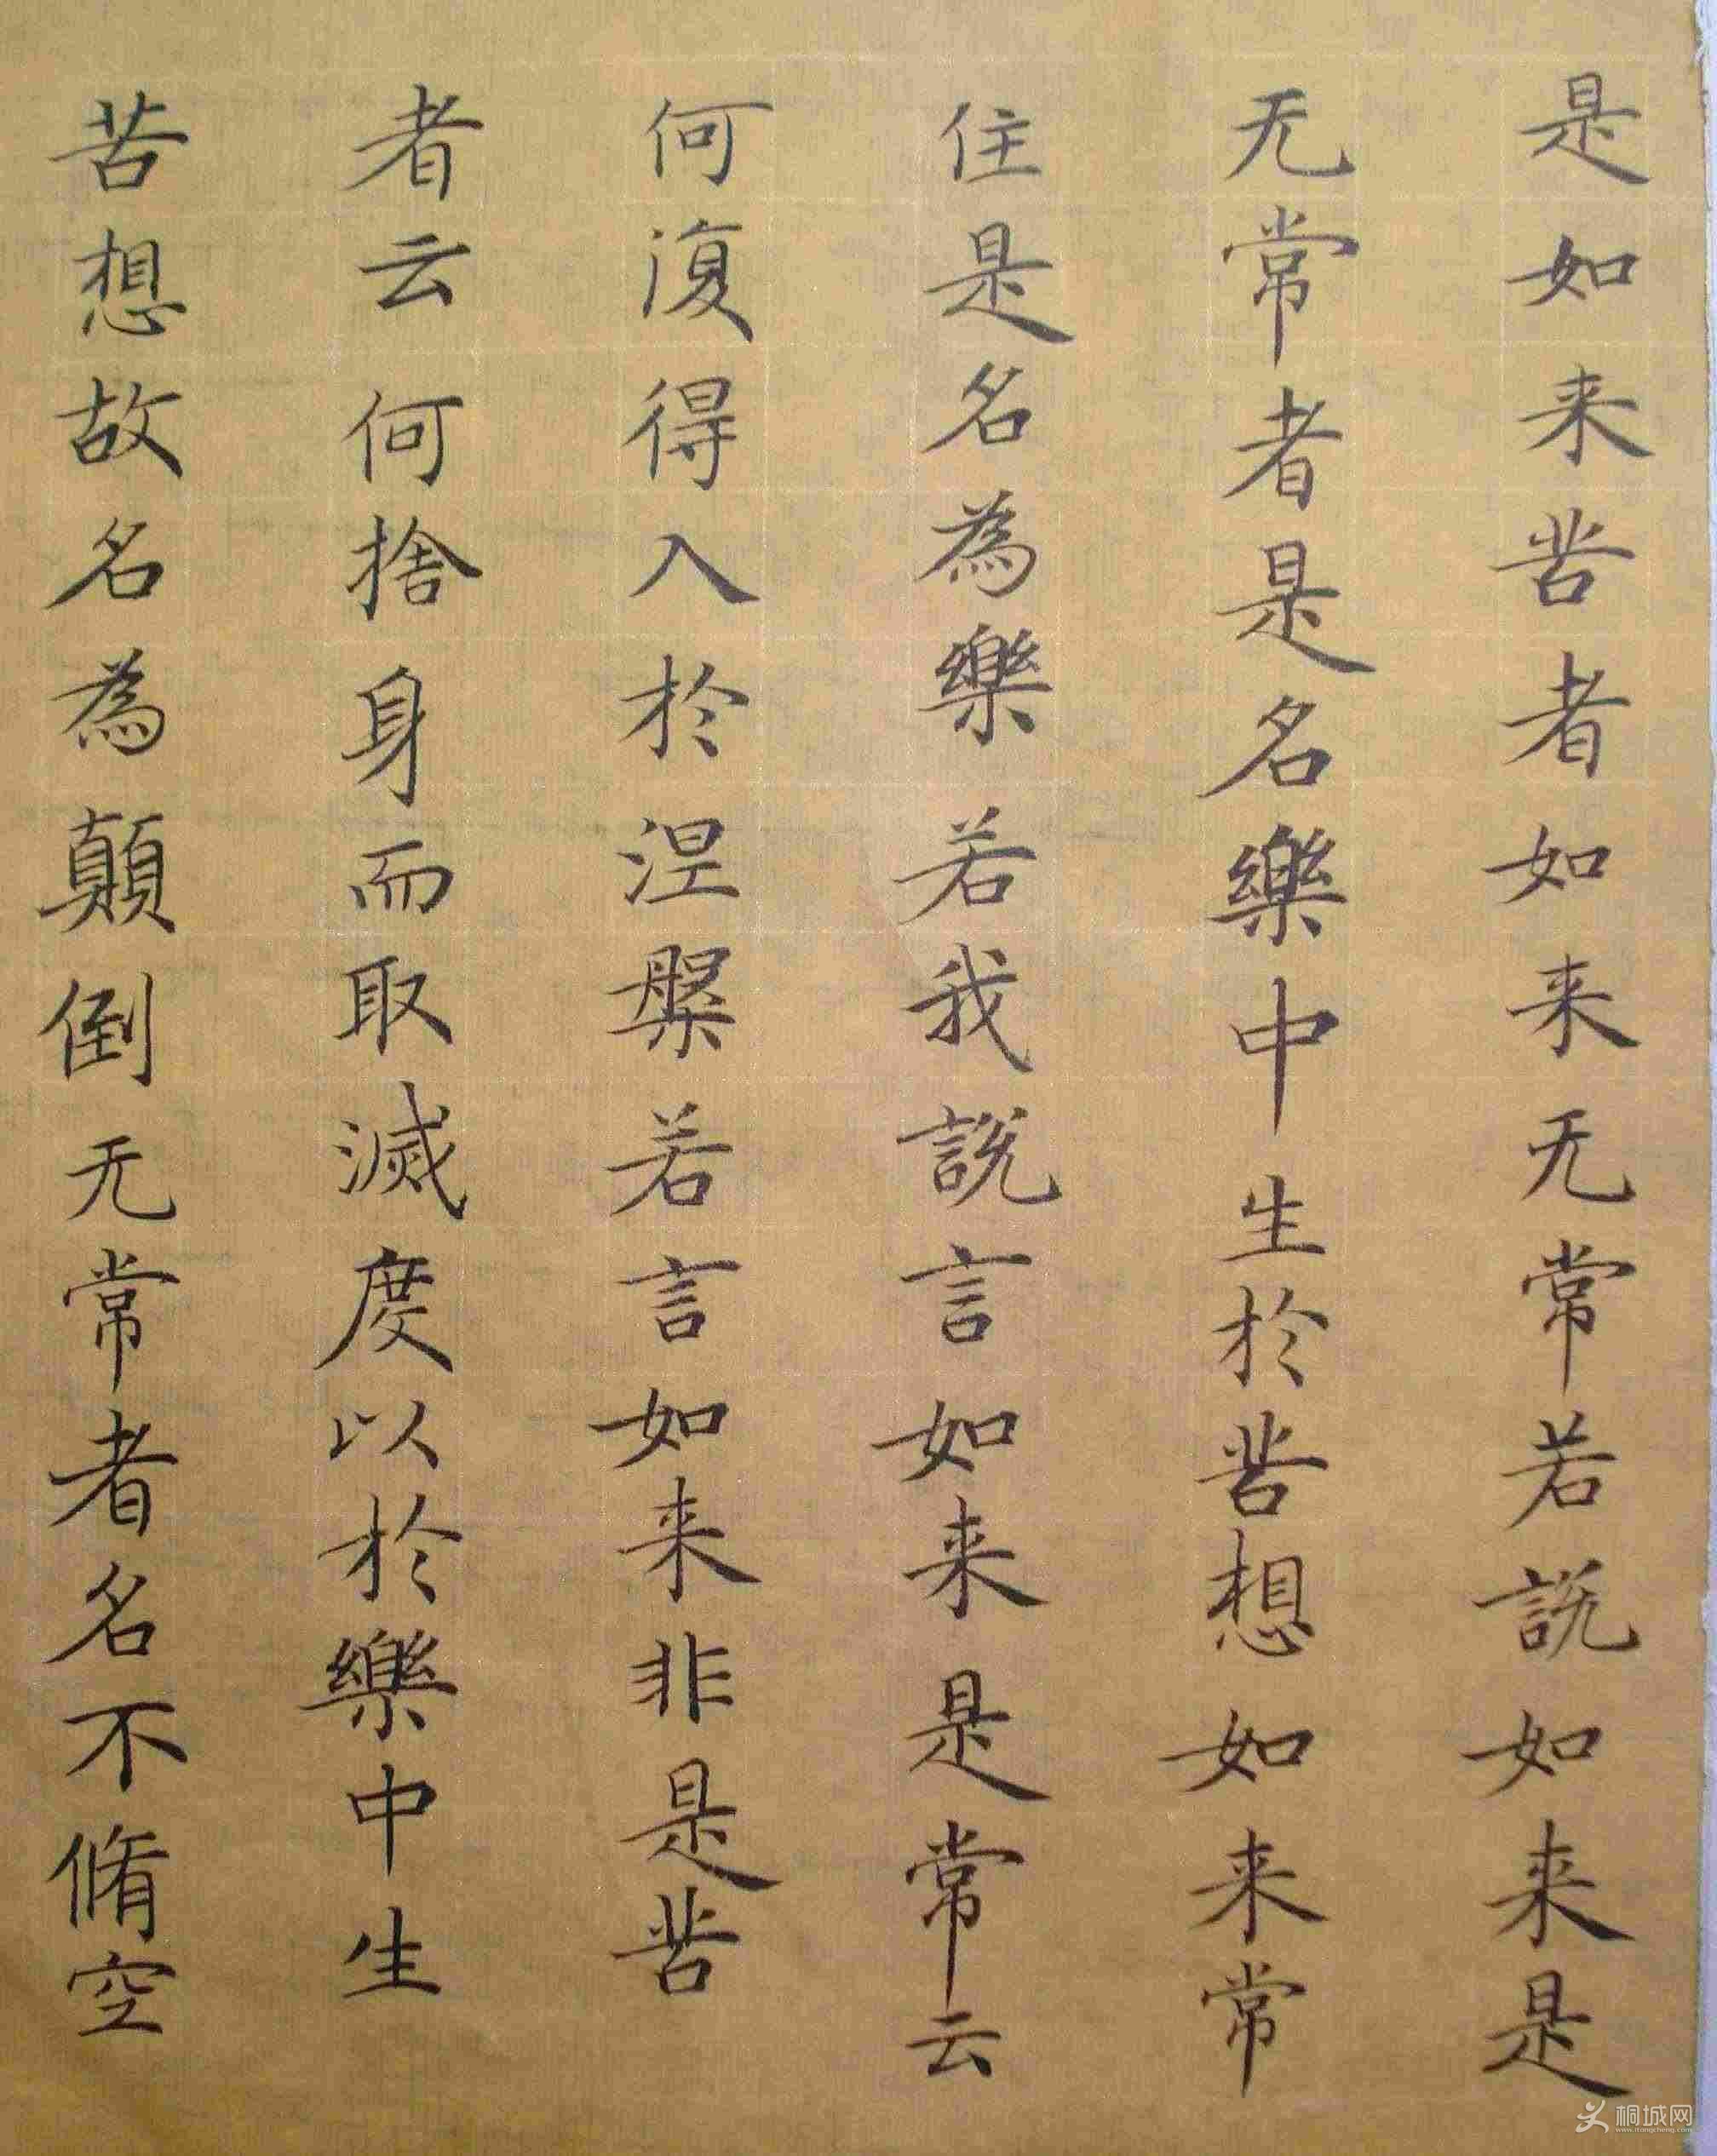 是如来苦者如来无常若説如来是
无常者是名樂中生於苦想如来常
住是名為樂若我説言如来是常云
何復得入於涅槃若言如来非是苦
者云何捨身而取滅度以於樂中生
苦想故名為顛倒无常者名不脩空
桐城网
itongcheng.com